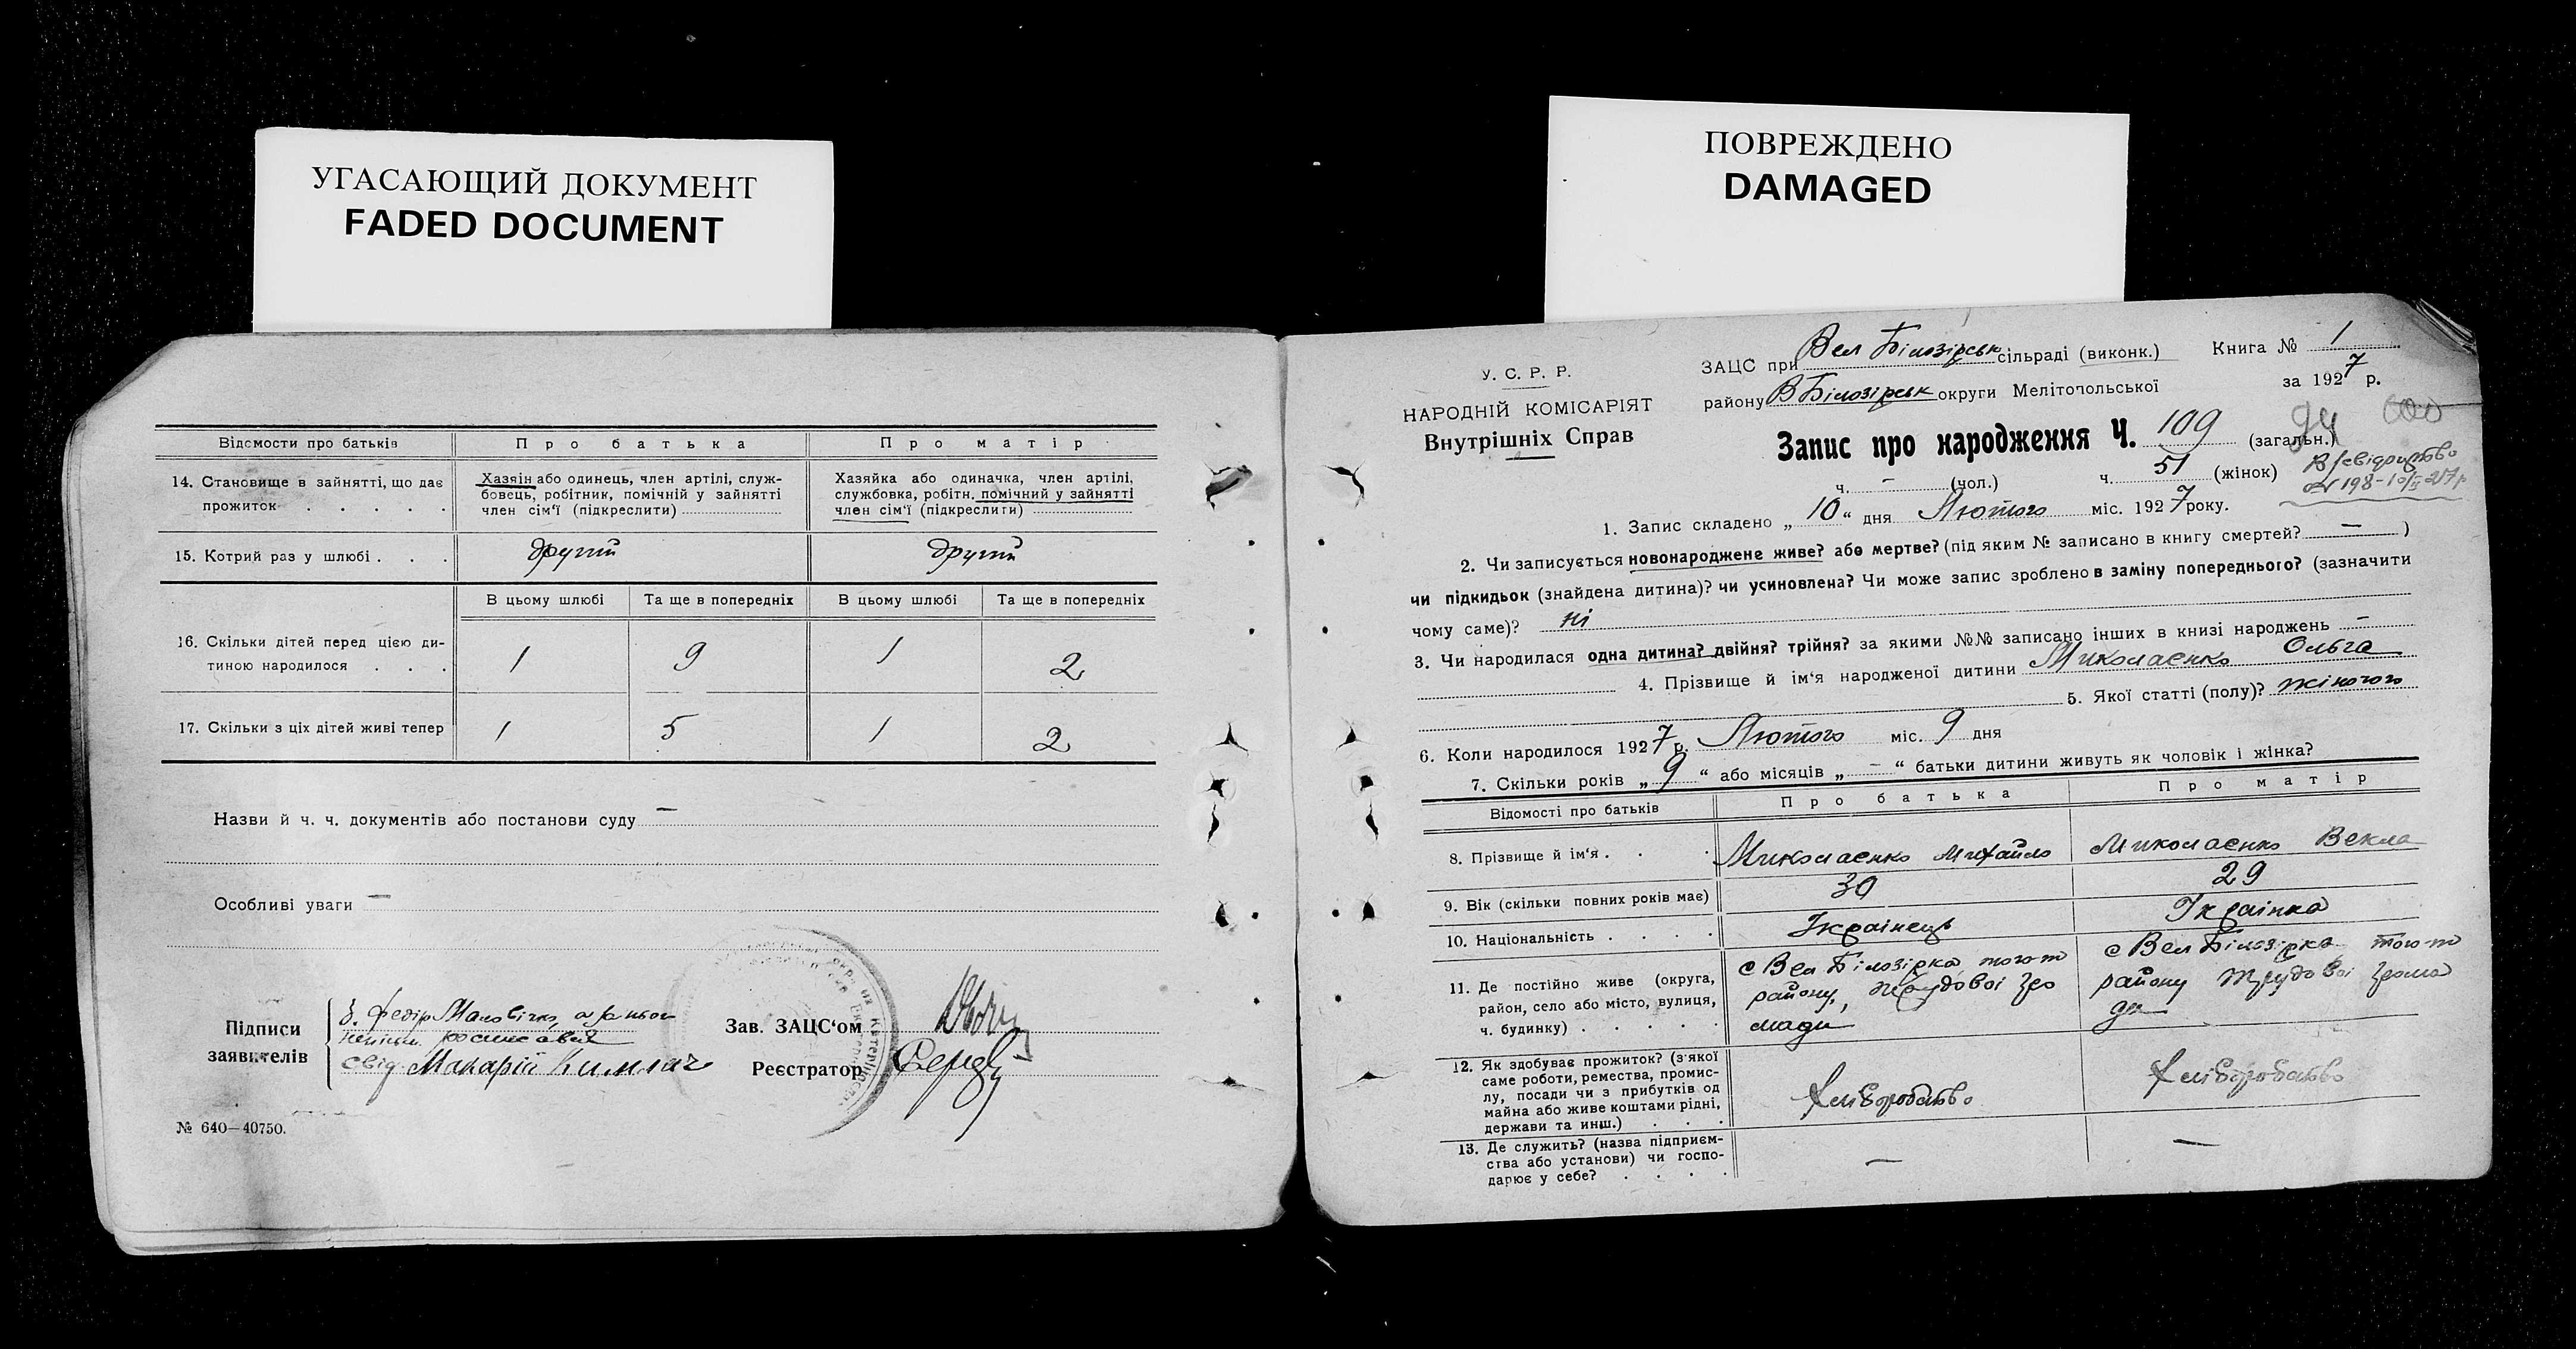 УГАСАЮЩИЙ ДОКУМЕНТ
FADED DOCUMENT
Відомости про батьків | Про батька | Про матір
14. Становище в зайнятті, що дає прожиток . . . . . | Хазяін або одинець, член артілі, службовець, робітник, помічній у зайнятті член сім'ї (підкреслити) | Хазяйка або одиначка, член артілі, службовка, робітн. помічний у зайнятті член сім'ї (підкреслити)
15. Котрий раз у шлюбі . . . | другий | другий
В цьому шлюбі | Та ще в попередніх | В цьому шлюбі | Та ще в попередніх
16. Скільки дітей перед цією дитиною народилося . . . | 1 | 9 | 1 | 2
17. Скільки з ціх дітей живі тепер | 1 | 5 | 1 | 2
Назви й ч. ч. документів або постанови суду —
Особливі уваги —
Підписи заявителів
Федір
свід. Макарій
Зав. ЗАЦС'ом
Реєстратор
№ 640—40750.
ПОВРЕЖДЕНО
DAMAGED
У. С. Р. Р.
НАРОДНІЙ КОМІСАРІЯТ
Внутрішніх Справ
ЗАЦС при Вел Білозірськ сільраді (виконк.) Книга № 1
району В Білозірськ округи Мелітопольської за 1927 р.
Запис про народження Ч. 109 (загальн.)
ч. - (чол.) ч. 51 (жінок)
1. Запис складено „10“ дня Лютого міс. 1927 року.
2. Чи записується новонароджене живе? або мертве? (під яким № записано в книгу смертей? — )
чи підкидьок (знайдена дитина)? чи усиновлена? Чи може запис зроблено в заміну попереднього? (зазначити
чому саме)? ні
3. Чи народилася одна дитина? двійня? трійня? за якими №№ записано інших в книзі народжень —
4. Прізвище й ім'я народженої дитини Миколаєнко Ольга
5. Якої статті (полу)? жіночого
6. Коли народилося 1927 р. Лютого міс. 9 дня
7. Скільки років „9“ або місяців „—“ батьки дитини живуть як чоловік і жінка?
Відомості про батьків | Про батька | Про матір
8. Прізвище й ім'я . . . | Миколаєнко Михайло | Миколаєнко Векла
9. Вік (скільки повних років має) | 30 | 29
10. Національність . . . . | Українець | Українка
11. Де постійно живе (округа, район, село або місто, вулиця, ч. будинку) . . . . . | с Вел Білозірка того-ж району, трудової громади | с Вел Білозірка того-ж району трудової громади
12. Як здобуває прожиток? (з якої саме роботи, ремества, промислу, посади чи з прибутків од майна або живе коштами рідні, держави та инш.) . . . | Хліборобство | Хліборобство
13. Де служить? (назва підприємства або установи) чи господарює у себе? . . . . | — | —